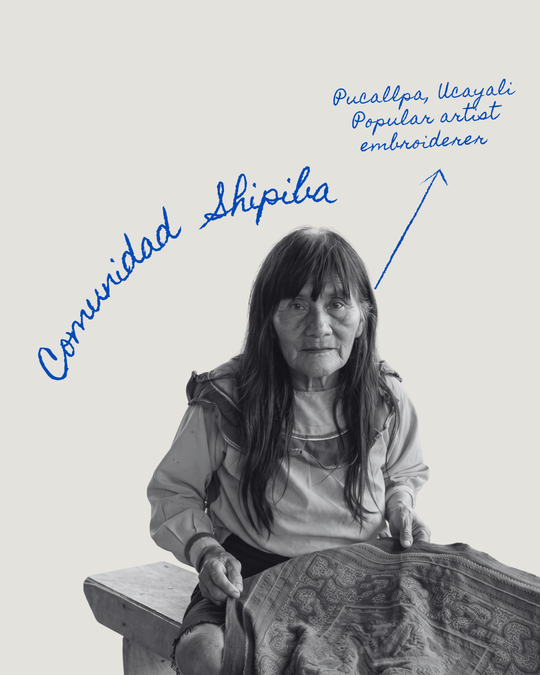 Pucallpa, Ucayali
Popular artist
embroiderer
Comunidad Shipiba